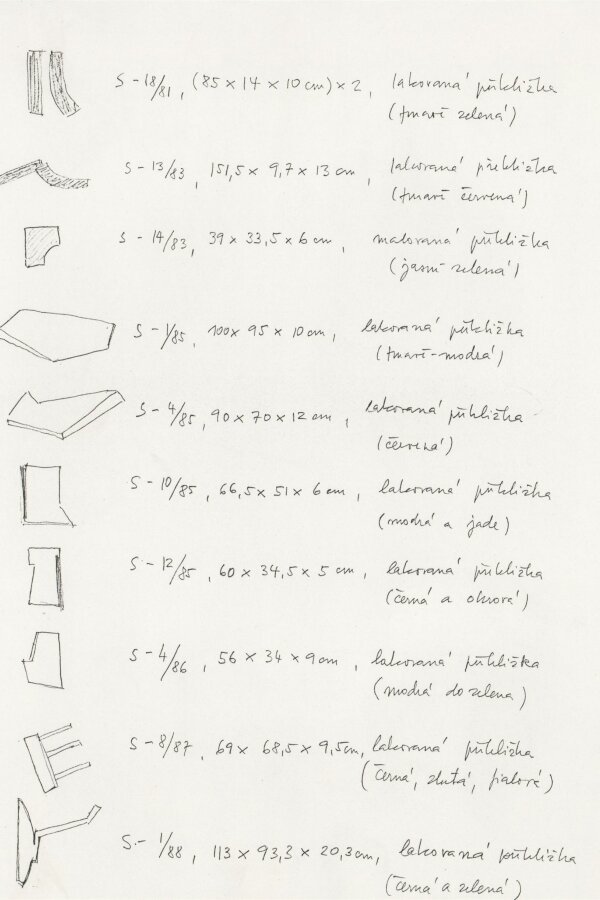 S - 18/81, (85 x 14 x 10 cm) x 2, lakovaná překližka
(tmavě zelená)
S - 13/83, 151,5 x 9,7 x 13 cm, lakovaná překližka
(tmavě červená)
S - 14/83, 39 x 33,5 x 6 cm, malovaná překližka
(jasně zelená)
S - 1/85, 100 x 95 x 10 cm, lakovaná překližka
(tmavě-modrá)
S - 4/85, 90 x 70 x 12 cm, lakovaná překližka
(červená)
S - 10/85, 66,5 x 51 x 6 cm, lakovaná překližka
(modrá a jade)
S - 12/85, 60 x 34,5 x 5 cm, lakovaná překližka
(černá a okrová)
S - 4/86, 56 x 34 x 9 cm, lakovaná překližka
(modrá do zelena)
S - 8/87, 69 x 68,5 x 9,5 cm, lakovaná překližka
(černá, žlutá, fialová)
S - 1/88, 113 x 93,3 x 20,3 cm, lakovaná překližka
(černá a zelená)